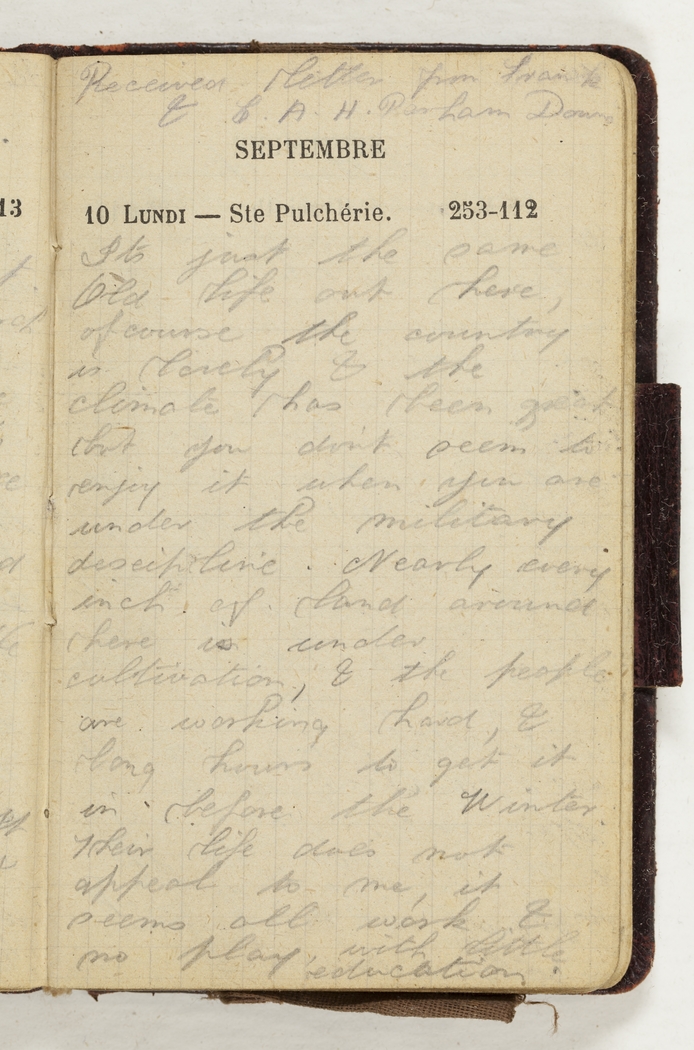 Received letter from Frank
& C. A. H. Parham Downs
SEPTEMBRE
13
10 LUNDI — Ste Pulchérie. 253-112
Its just the same
Old life out here,
ofcourse the country
is lovely & the
climate has been great
but you dont seem to
enjoy it when you are
under the military
descipline. Nearly every
inch of land around
here is under
cultivation, & the people
are working hard, &
long hours to get it
in before the Winter.
Their life does not
appeal to me, it
seems all work &
no play, with little
education.